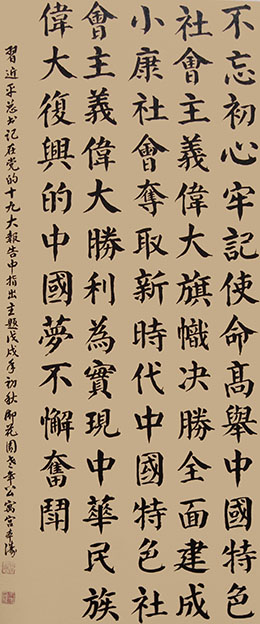 不忘初心牢記使命高舉中國特色
社會主義偉大旗幟决勝全面建成
小康社會奪取新時代中國特色社
會主義偉大勝利為實現中華民族
偉大復興的中國夢不懈奮鬭
習近平总书记在党的十九大報告中指出主題戊戌年初秋即花園老年公寓宫